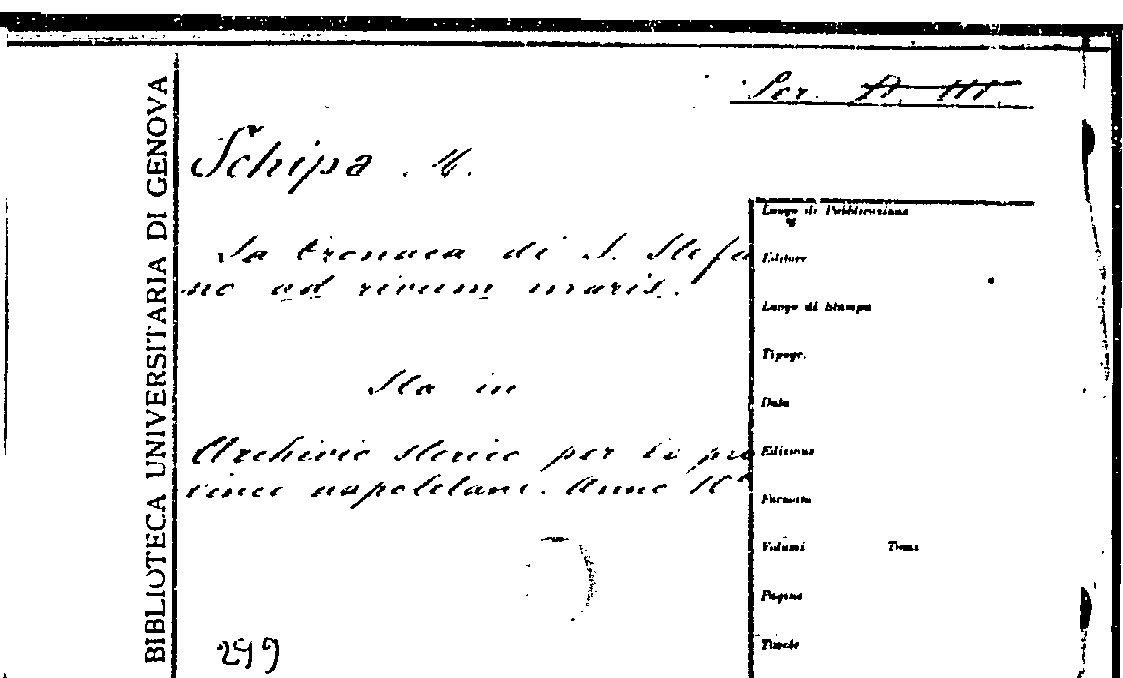 BIBLIOTECA UNIVERSITARIA DI GENOVA
Per.
Schipa . M.
La Cronaca di S. Stefa
no ad rivum maris.
Sta in
Archivio storico per le pro
vince napoletane. Anno
249
Luogo di Pubblicazione
Editore
Luogo di Stampa
Tipogr.
Data
Edizione
Formato
Volumi Tomi
Pagine
Titolo